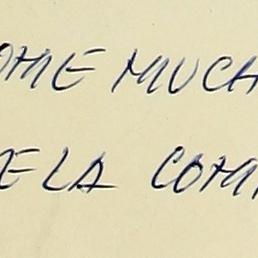 OME MUCH
ELA COM